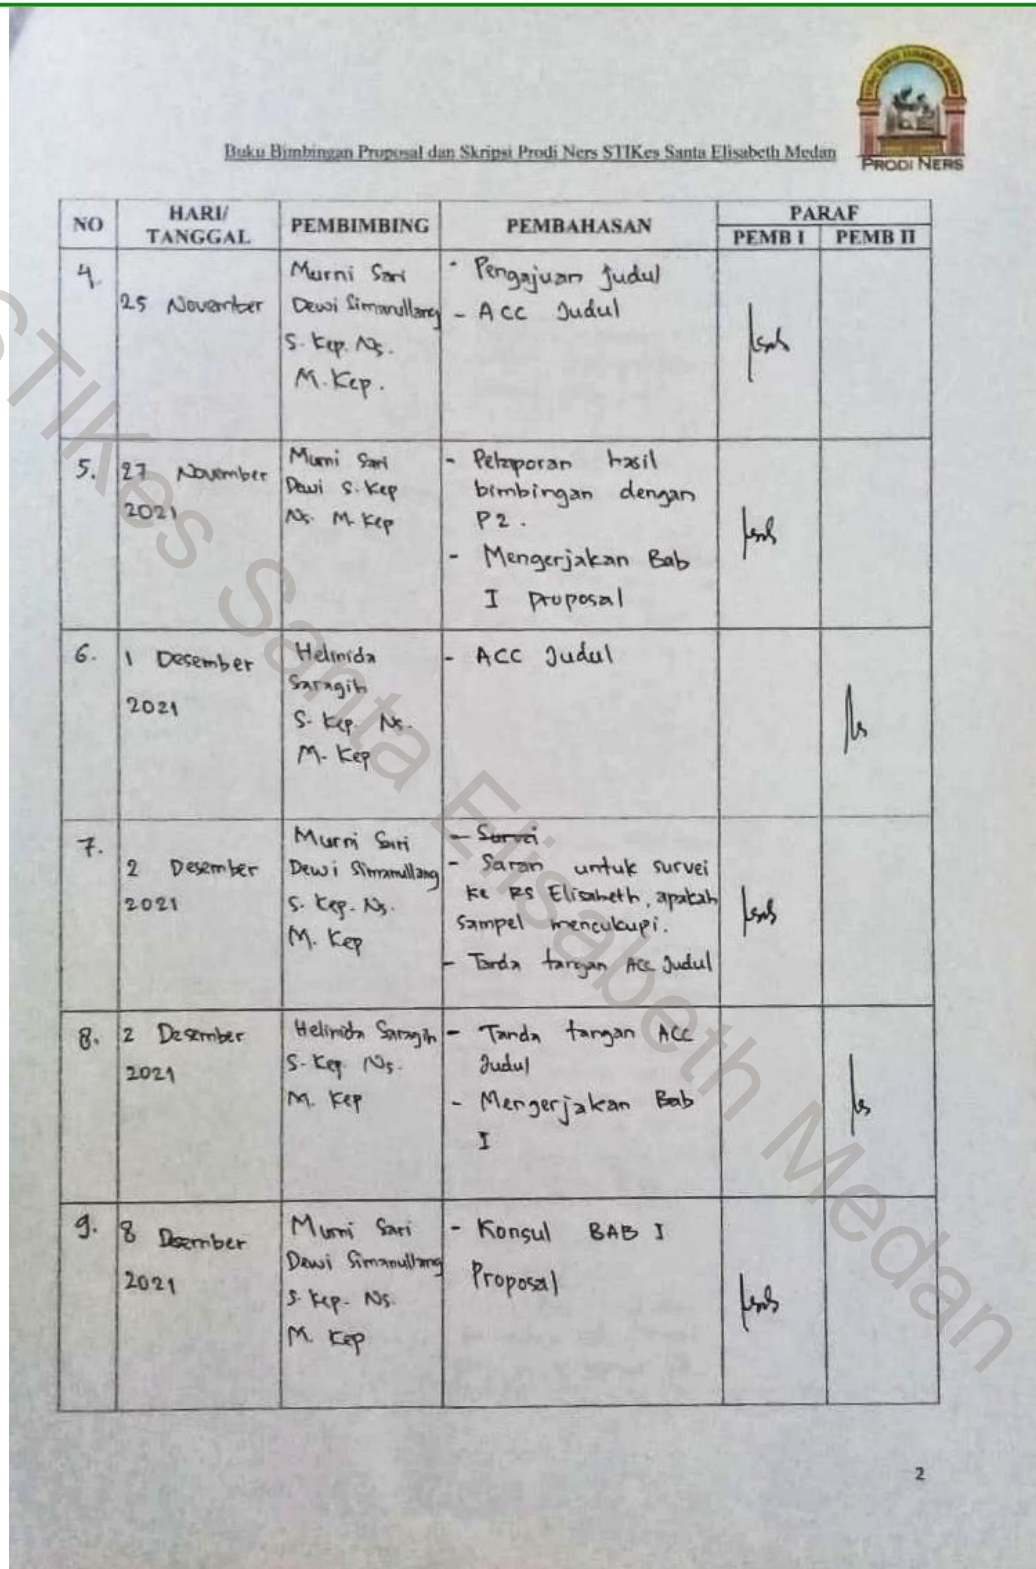 PRODI NERS
Buku Bimbingan Proposal dan Skripsi Prodi Ners STIKes Santa Elisabeth Medan
NO HARI/ TANGGAL PEMBIMBING PEMBAHASAN PARAF
PEMB I PEMB II
4.
25 November
Murni Sari
Dewi Simanullang
S. Kep. Ns.
M. Kep.
- Pengajuan Judul
- ACC Judul
5.
27 November
2021
Murni Sari
Dewi S. Kep
Ns. M. Kep
- Pelaporan hasil
bimbingan dengan
P2.
- Mengerjakan Bab
I proposal
6.
1 Desember
2021
Helinida
Saragih
S. Kep. Ns.
M. Kep
- ACC Judul
7.
2 Desember
2021
Murni Sari
Dewi Simanullang
S. Kep. Ns.
M. Kep
- Survei
- Saran untuk survei
ke RS Elisabeth, apakah
sampel mencukupi.
- Tanda tangan ACC Judul
8.
2 Desember
2021
Helinida Saragih
S. Kep. Ns.
M. Kep
- Tanda tangan ACC
Judul
- Mengerjakan Bab
I
9.
8 Desember
2021
Murni Sari
Dewi Simanullang
S. Kep. Ns.
M. Kep
- Konsul BAB I
Proposal
2
STIKes Santa Elisabeth Medan